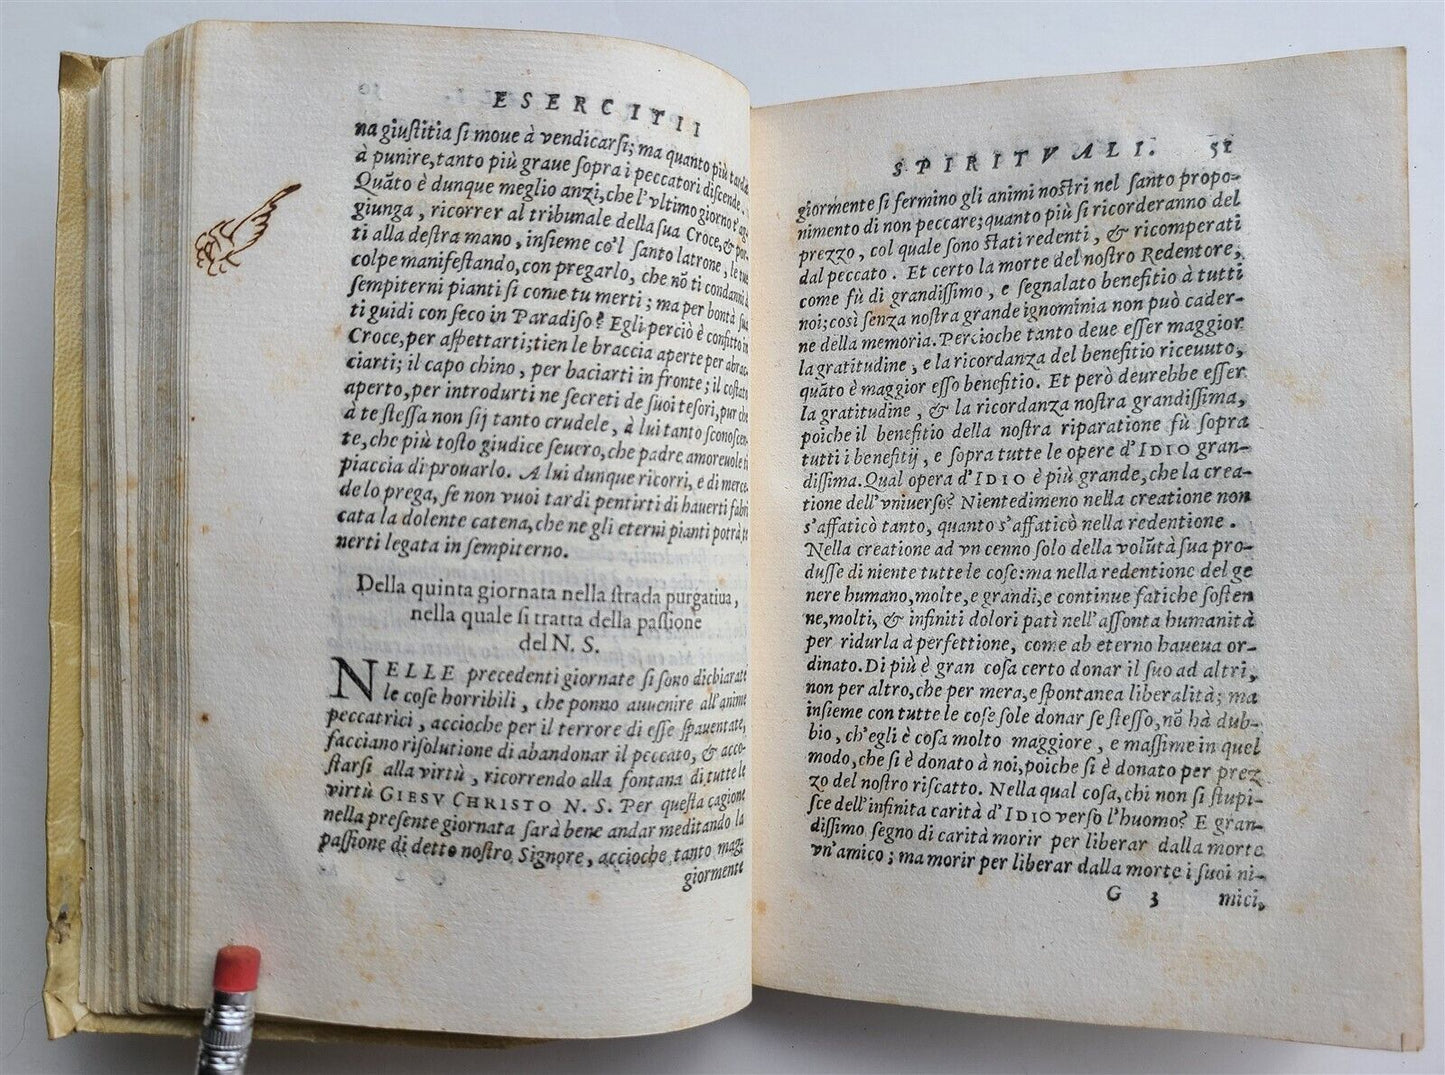 ESERCITII
na giuſtitia ſi moue à vendicarſi; ma quanto più tarda
à punire, tanto più graue ſopra i peccatori diſcende.
Quãto è dunque meglio anzi, che l'vltimo giorno t'ag-
giunga, ricorrer al tribunale della ſua Croce, & por-
ti alla deſtra mano, inſieme co'l ſanto latrone, le tue
colpe manifeſtando, con pregarlo, che nõ ti condanni à
ſempiterni pianti ſi come tu merti; ma per bontà ſua
ti guidi con ſeco in Paradiſo? Egli perciò è confitto in
Croce, per aſpettarti; tien le braccia aperte per abrac-
ciarti; il capo chino, per baciarti in fronte; il coſtato
aperto, per introdurti ne ſecreti de ſuoi teſori, pur che
à te ſteſſa non ſij tanto crudele, à lui tanto ſconoſcen-
te, che più toſto giudice ſeuero, che padre amoreuole ti
piaccia di prouarlo. A lui dunque ricorri, e di merce-
de lo prega, ſe non vuoi tardi pentirti di hauerti fabri
cata la dolente catena, che ne gli eterni pianti potrà te
nerti legata in ſempiterno.
Della quinta giornata nella ſtrada purgatiua,
nella quale ſi tratta della paſſione
del N. S.
NELLE precedenti giornate ſi ſono dichiarate
le coſe horribili, che ponno auuenire all'anime
peccatrici, accioche per il terrore di eſſe ſpauentate,
facciano riſolutione di abandonar il peccato, & acco-
ſtarſi alla virtù, ricorrendo alla fontana di tutte le
virtù GIESV CHRISTO N. S. Per queſta cagione
nella preſente giornata ſarà bene andar meditando la
paſſione di detto noſtro Signore, accioche tanto mag-
giormente
SPIRITVALI. 51
giormente ſi fermino gli animi noſtri nel ſanto propo-
nimento di non peccare; quanto più ſi ricorderanno del
prezzo, col quale ſono ſtati redenti, & ricomperati
dal peccato. Et certo la morte del noſtro Redentore,
come fù di grandiſſimo, e ſegnalato benefitio à tutti
noi; così ſenza noſtra grande ignominia non può cader-
ne della memoria. Percioche tanto deue eſſer maggior
la gratitudine, e la ricordanza del benefitio riceuuto,
quãto è maggior eſſo benefitio. Et però deurebbe eſſer
la gratitudine, & la ricordanza noſtra grandiſſima,
poiche il benefitio della noſtra riparatione fù ſopra
tutti i benefitij, e ſopra tutte le opere d'IDIO gran-
diſſima. Qual opera d'IDIO è più grande, che la crea-
tione dell'vniuerſo? Nientedimeno nella creatione non
s'affaticò tanto, quanto s'affaticò nella redentione.
Nella creatione ad vn cenno ſolo della volũtà ſua pro-
duſſe di niente tutte le coſe: ma nella redentione del ge
nere humano, molte, e grandi, e continue fatiche ſoſten
ne, molti, & infiniti dolori patì nell'aſſonta humanità
per ridurla à perfettione, come ab eterno haueua or-
dinato. Di più è gran coſa certo donar il ſuo ad altri,
non per altro, che per mera, e ſpontanea liberalità; ma
inſieme con tutte le coſe ſole donar ſe ſteſſo, nõ hà dub-
bio, ch'egli è coſa molto maggiore, e maſſime in quel
modo, che ſi è donato à noi, poiche ſi è donato per prez
zo del noſtro riſcatto. Nella qual coſa, chi non ſi ſtupi-
ſce dell'infinita carità d'IDIO verſo l'huomo? E gran-
diſſimo ſegno di carità morir per liberar dalla morte
vn'amico; ma morir per liberar dalla morte i ſuoi ni-
G 3 mici,